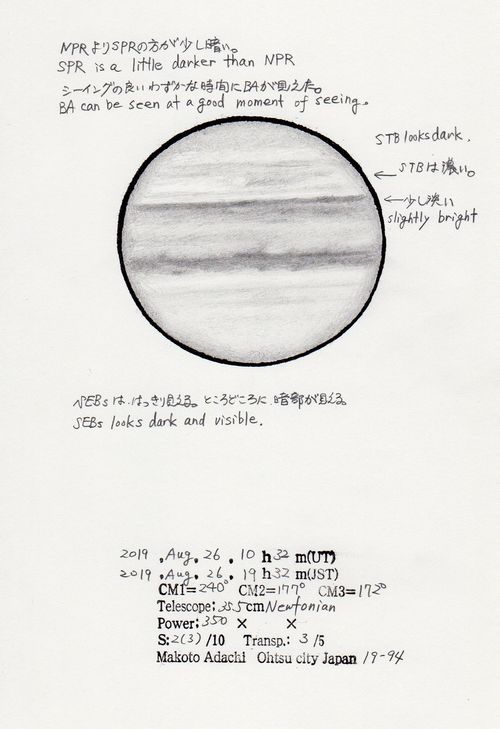 NPRよりSPRの方が少し暗い。
SPR is a little darker than NPR
シーイングの良いわずかな時間にBAが見えた。
BA can be seen at a good moment of seeing.
STB looks dark.
← STBは濃い。
← 少し淡い
slightly bright
SEBsは、はっきり見える。ところどころに暗部が見える。
SEBs looks dark and visible.
2019 .Aug. 26 . 10 h 32 m(UT)
2019 .Aug. 26 . 19 h 32 m(JST)
CM1= 240° CM2= 177° CM3= 172°
Telescope: 35.5cm Newtonian
Power: 350 × ×
S: 2(3) /10 Transp.: 3 /5
Makoto Adachi Ohtsu city Japan 19-94